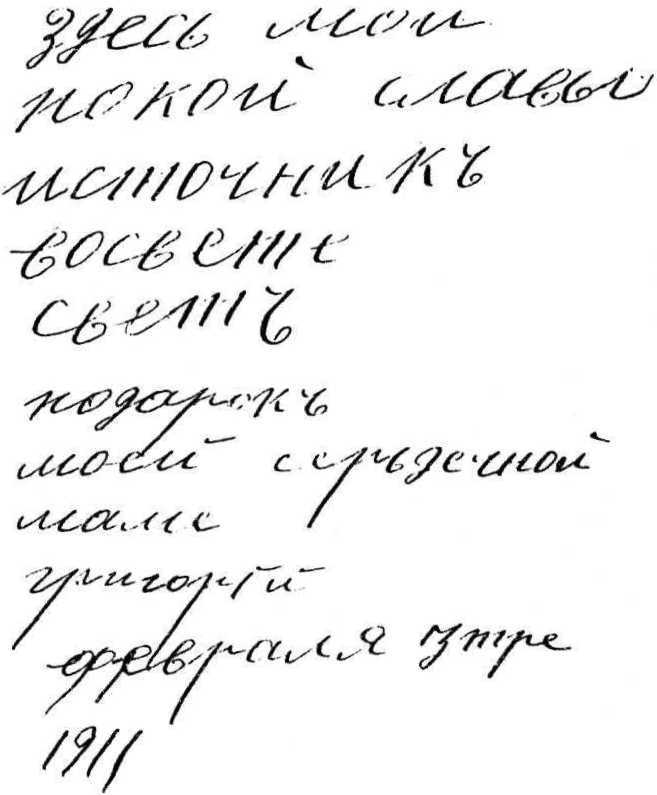 здесь мои
покой славы
источникъ
восвете
светъ
подарокъ
моей серъдечной
маме
григорiй
февраля 3тре
1911